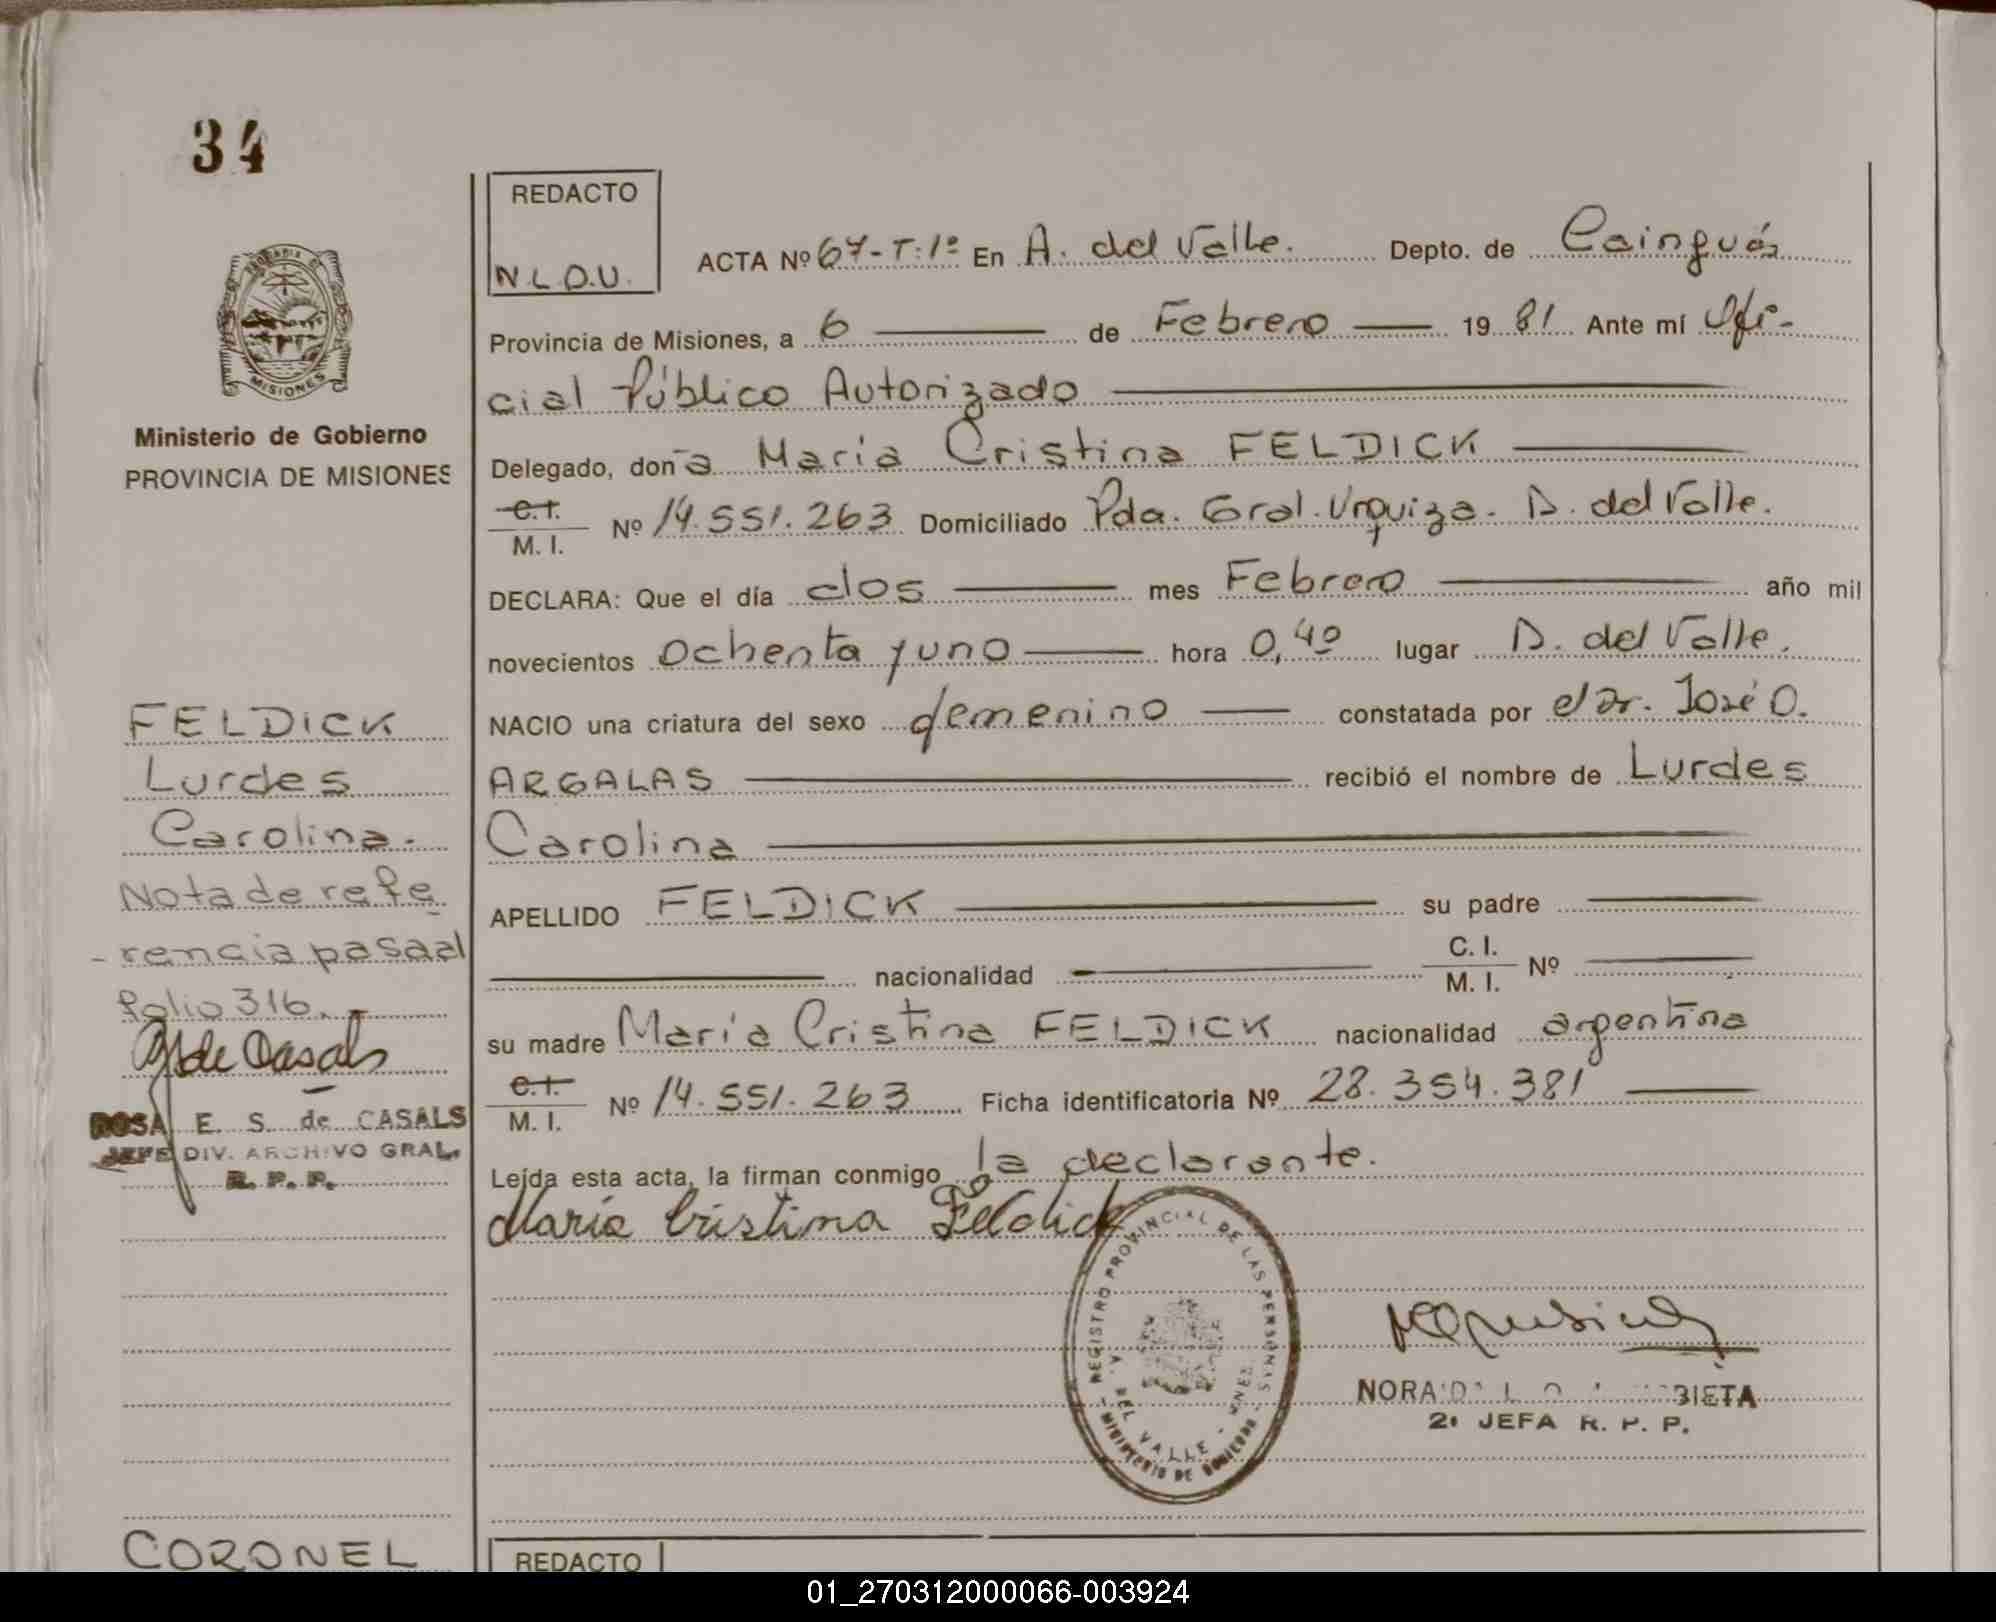 34
REDACTO
N.L.D.U.
ACTA Nº 67-T:1º En A. del Valle. Depto. de Cainguás
Provincia de Misiones, a 6 de Febrero 19 81 Ante mí Ofi-
cial Público Autorizado
Delegado, doña María Cristina FELDICK
C.I.
M. I. Nº 14.551.263 Domiciliado Pda. Gral. Urquiza. A. del Valle.
DECLARA: Que el día dos mes Febrero año mil
novecientos ochenta y uno hora 0,40 lugar A. del Valle.
NACIO una criatura del sexo femenino constatada por el Dr. José O.
ARGALAS recibió el nombre de Lurdes
Carolina
APELLIDO FELDICK su padre
nacionalidad C. I.
M. I. Nº
su madre María Cristina FELDICK nacionalidad argentina
C.I.
M. I. Nº 14.551.263 Ficha identificatoria Nº 28.354.381
Leída esta acta, la firman conmigo la declarante.
María Cristina Feldick
REGISTRO PROVINCIAL DE LAS PERSONAS
A. DEL VALLE - MNES.
MINISTERIO DE GOBIERNO
NORA BIETA
2ª JEFA R. P. P.
PROVINCIA DE
MISIONES
Ministerio de Gobierno
PROVINCIA DE MISIONES
FELDICK
Lurdes
Carolina.
Nota de refe
-rencia pasa al
folio 316.
de Casals
ROSA E. S. de CASALS
JEFE DIV. ARCHIVO GRAL.
R. P. P.
CORONEL
REDACTO
01_270312000066-003924